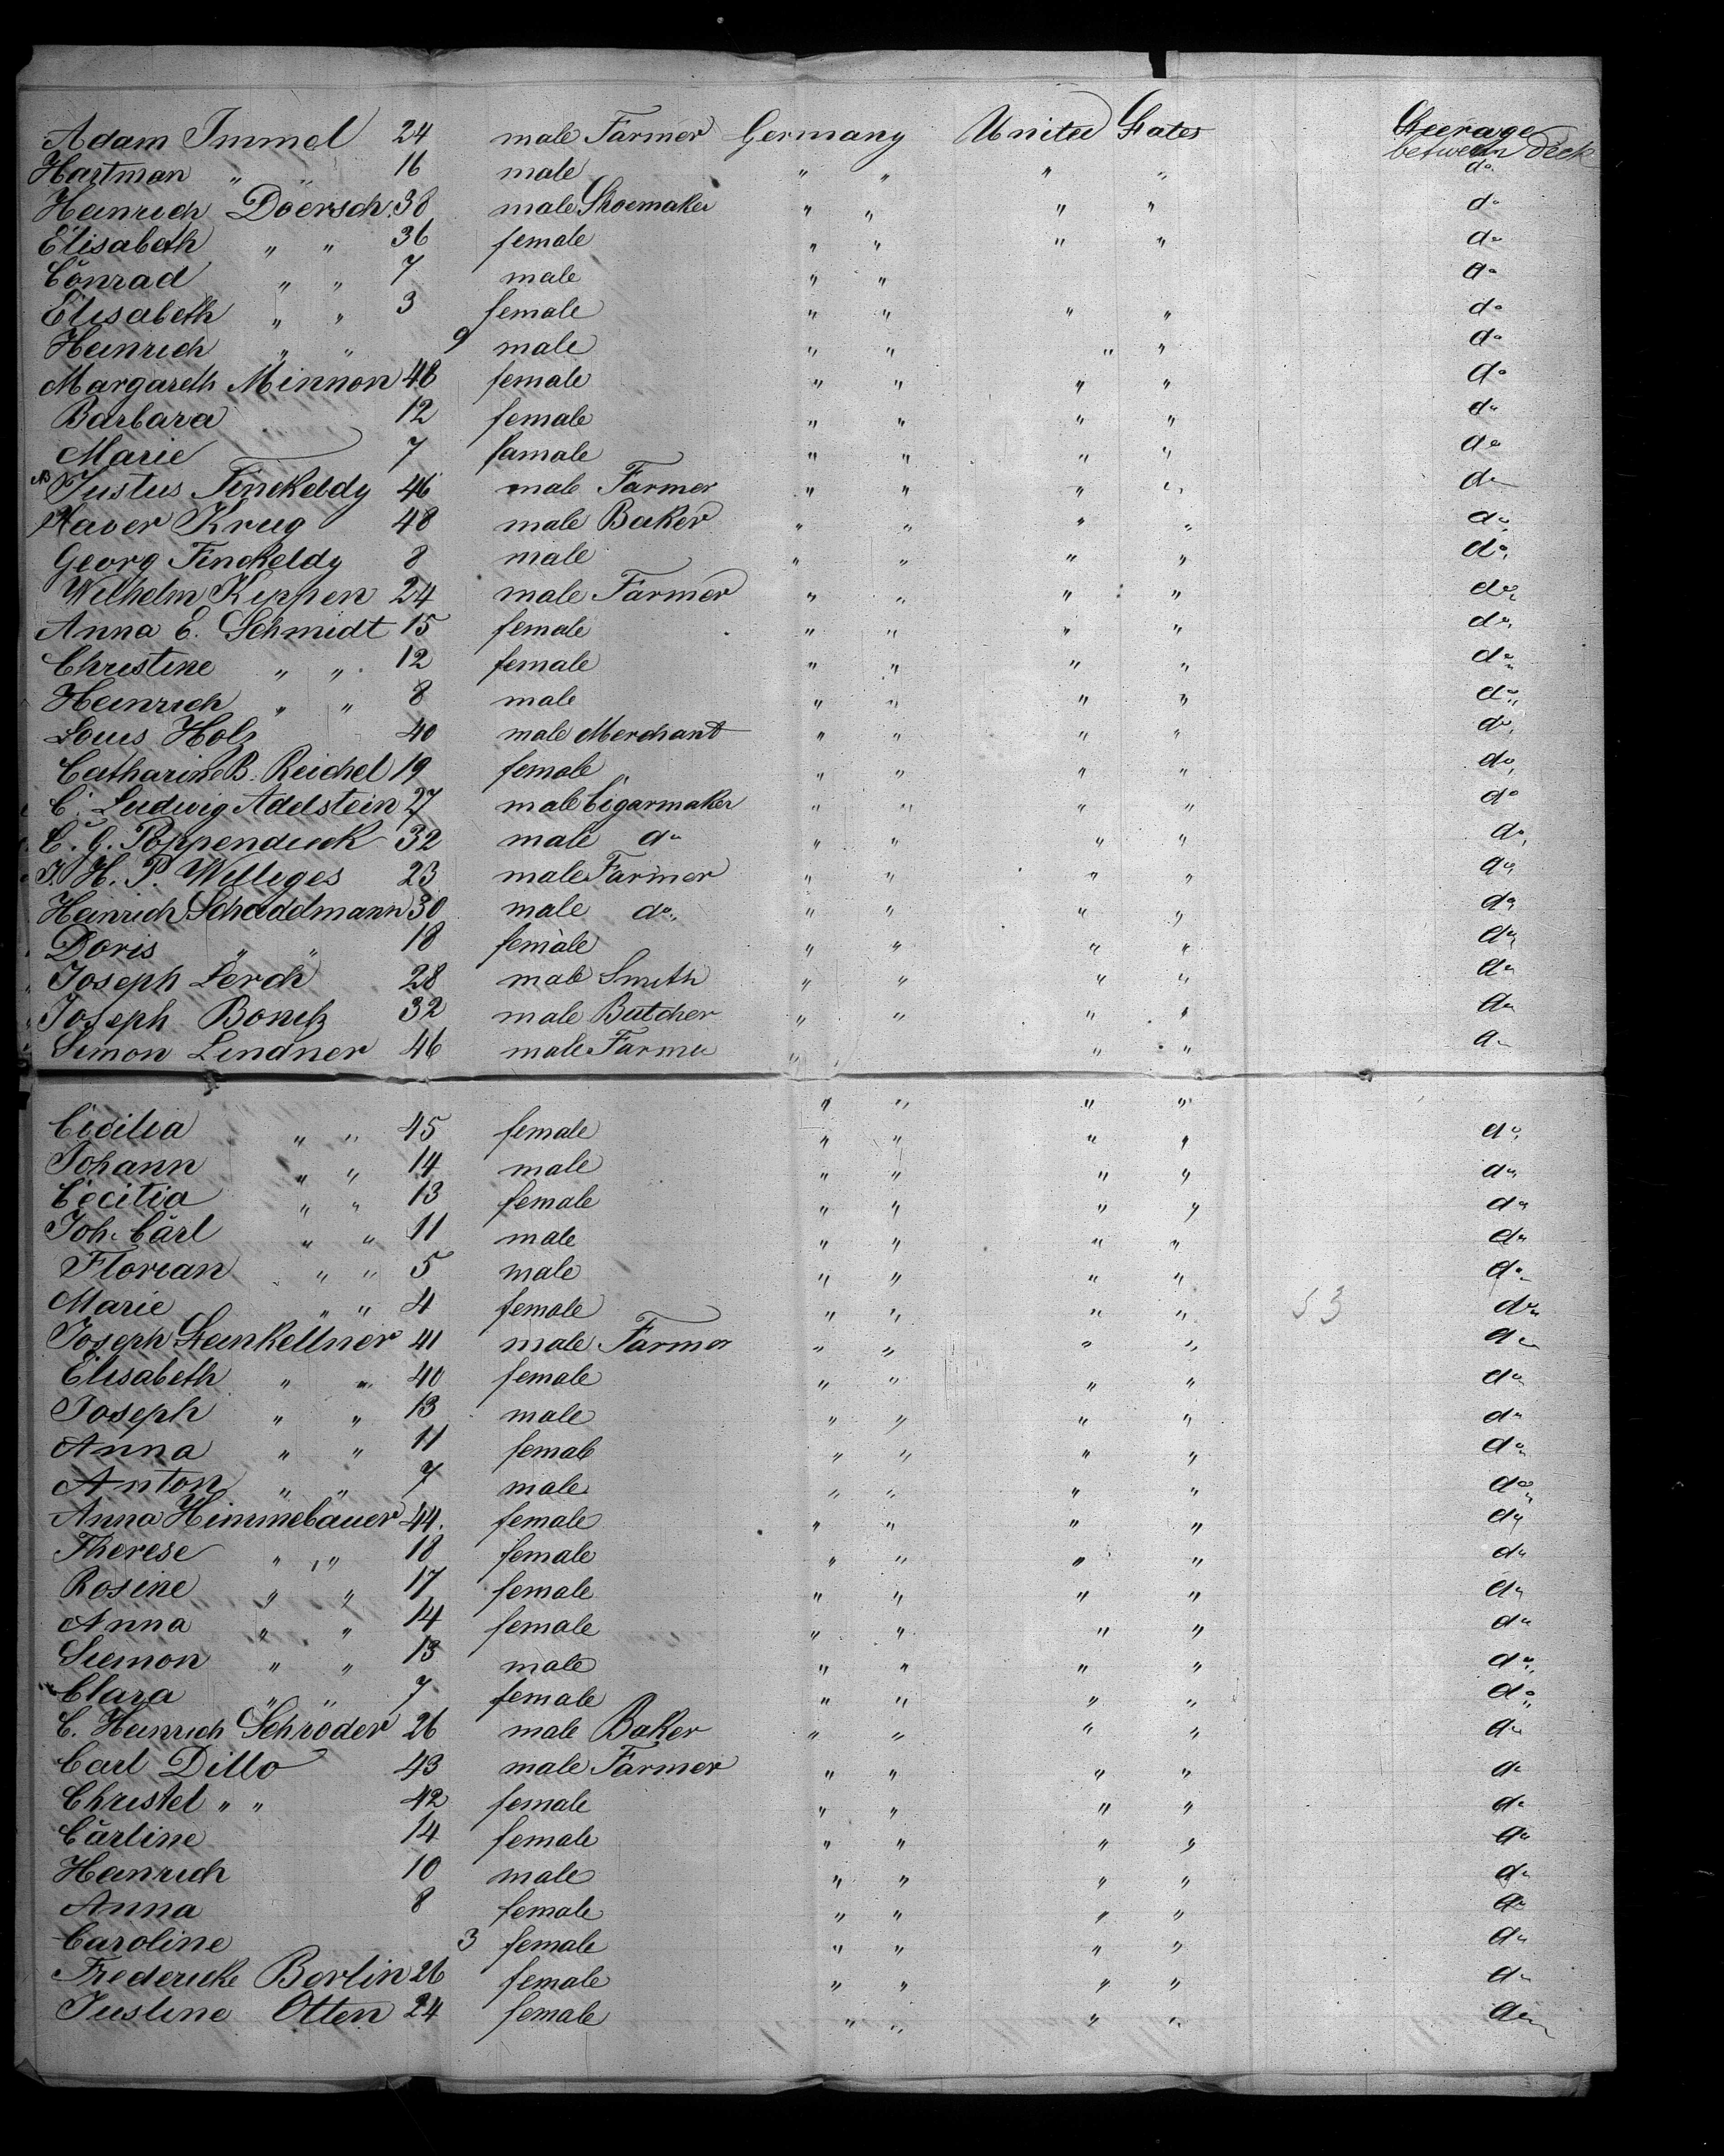 Adam Immel 24 male Farmer Germany United States Steerage between deck
Hartman " " 16 male " " " " do
Heinrich Doersch 38 male Shoemaker " " " " do
Elisabeth " " 36 female " " " " do
Conrad " " 7 male " " do
Elisabeth " " 3 female " " " " do
Heinrich " " 9 male " " " " do
Margareth Minnon 48 female " " " " do
Barbara 12 female " " " " do
Marie 7 famale " " " " do
Justus Finckeldy 46 male Farmer " " " " do
Xaver Krug 48 male Baker " " " " do
Georg Finckeldy 8 male " " " " do
Wilhelm Kippen 24 male Farmer " " " " do
Anna E. Schmidt 15 female " " " " do
Christine " " 12 female " " " " do
Heinrich " " 8 male " " " " do
Louis Holz 40 male Merchant " " " " do
Catharine B. Reichel 19 female " " " " do
C. Ludwig Adelstein 27 male Cigarmaker " " " " do
C. G. Poppendieck 32 male do " " " " do
J. H. P. Williges 23 male Farmer " " " " do
Heinrich Schaddmann 30 male do " " " " do
Doris " " 18 female " " " " do
Joseph Lerch 28 male Smith " " " " do
Joseph 32 male Butcher " " " " do
Simon Lindner 46 male Farmer " " " " do
" " " "
Cicilia " " 45 female " " " " do
Johann " " 14 male " " " " do
Cecilia " " 13 female " " " " do
Joh. Carl " " 11 male " " " " do
Florian " " 5 male " " " " do
Marie " " 4 female " " " " 53 do
Joseph Steinkellner 41 male Farmer " " " " do
Elisabeth " " 40 female " " " " do
Joseph " " 13 male " " " " do
Anna " " 11 female " " " " do
Anton " " 7 male " " " " do
Anna Himmelbauer 44. female " " " " do
Therese " " 18 female " " " " do
Rosine " " 17 female " " " " do
Anna " " 14 female " " " " do
Siemon " " 13 male " " " " do
Clara " " 7 female " " " " do
C. Heinrich Schröder 26 male Baker " " " " do
Carl Dillo 43 male Farmer " " " " do
Christel " " 42 female " " " " do
Carline 14 female " " " " do
Heinrich 10 male " " " " do
Anna 8 female " " " " do
Caroline 3 female " " " " do
Fredericke Berlin 26 female " " " " do
Justine Otten 24 female " " " " do